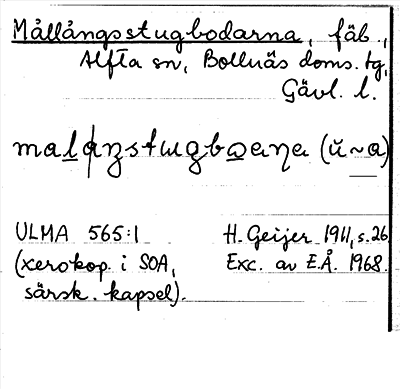 Mållångsstugbodarna, fäb.,
Alfta sn, Bollnäs doms. tg,
Gävl. l.
(ŭ~a)
ULMA 565:1 H. Geijer 1911, s. 26
(xerokop. i SOA, Exc. av E.Å. 1968.
särsk. kapsel).